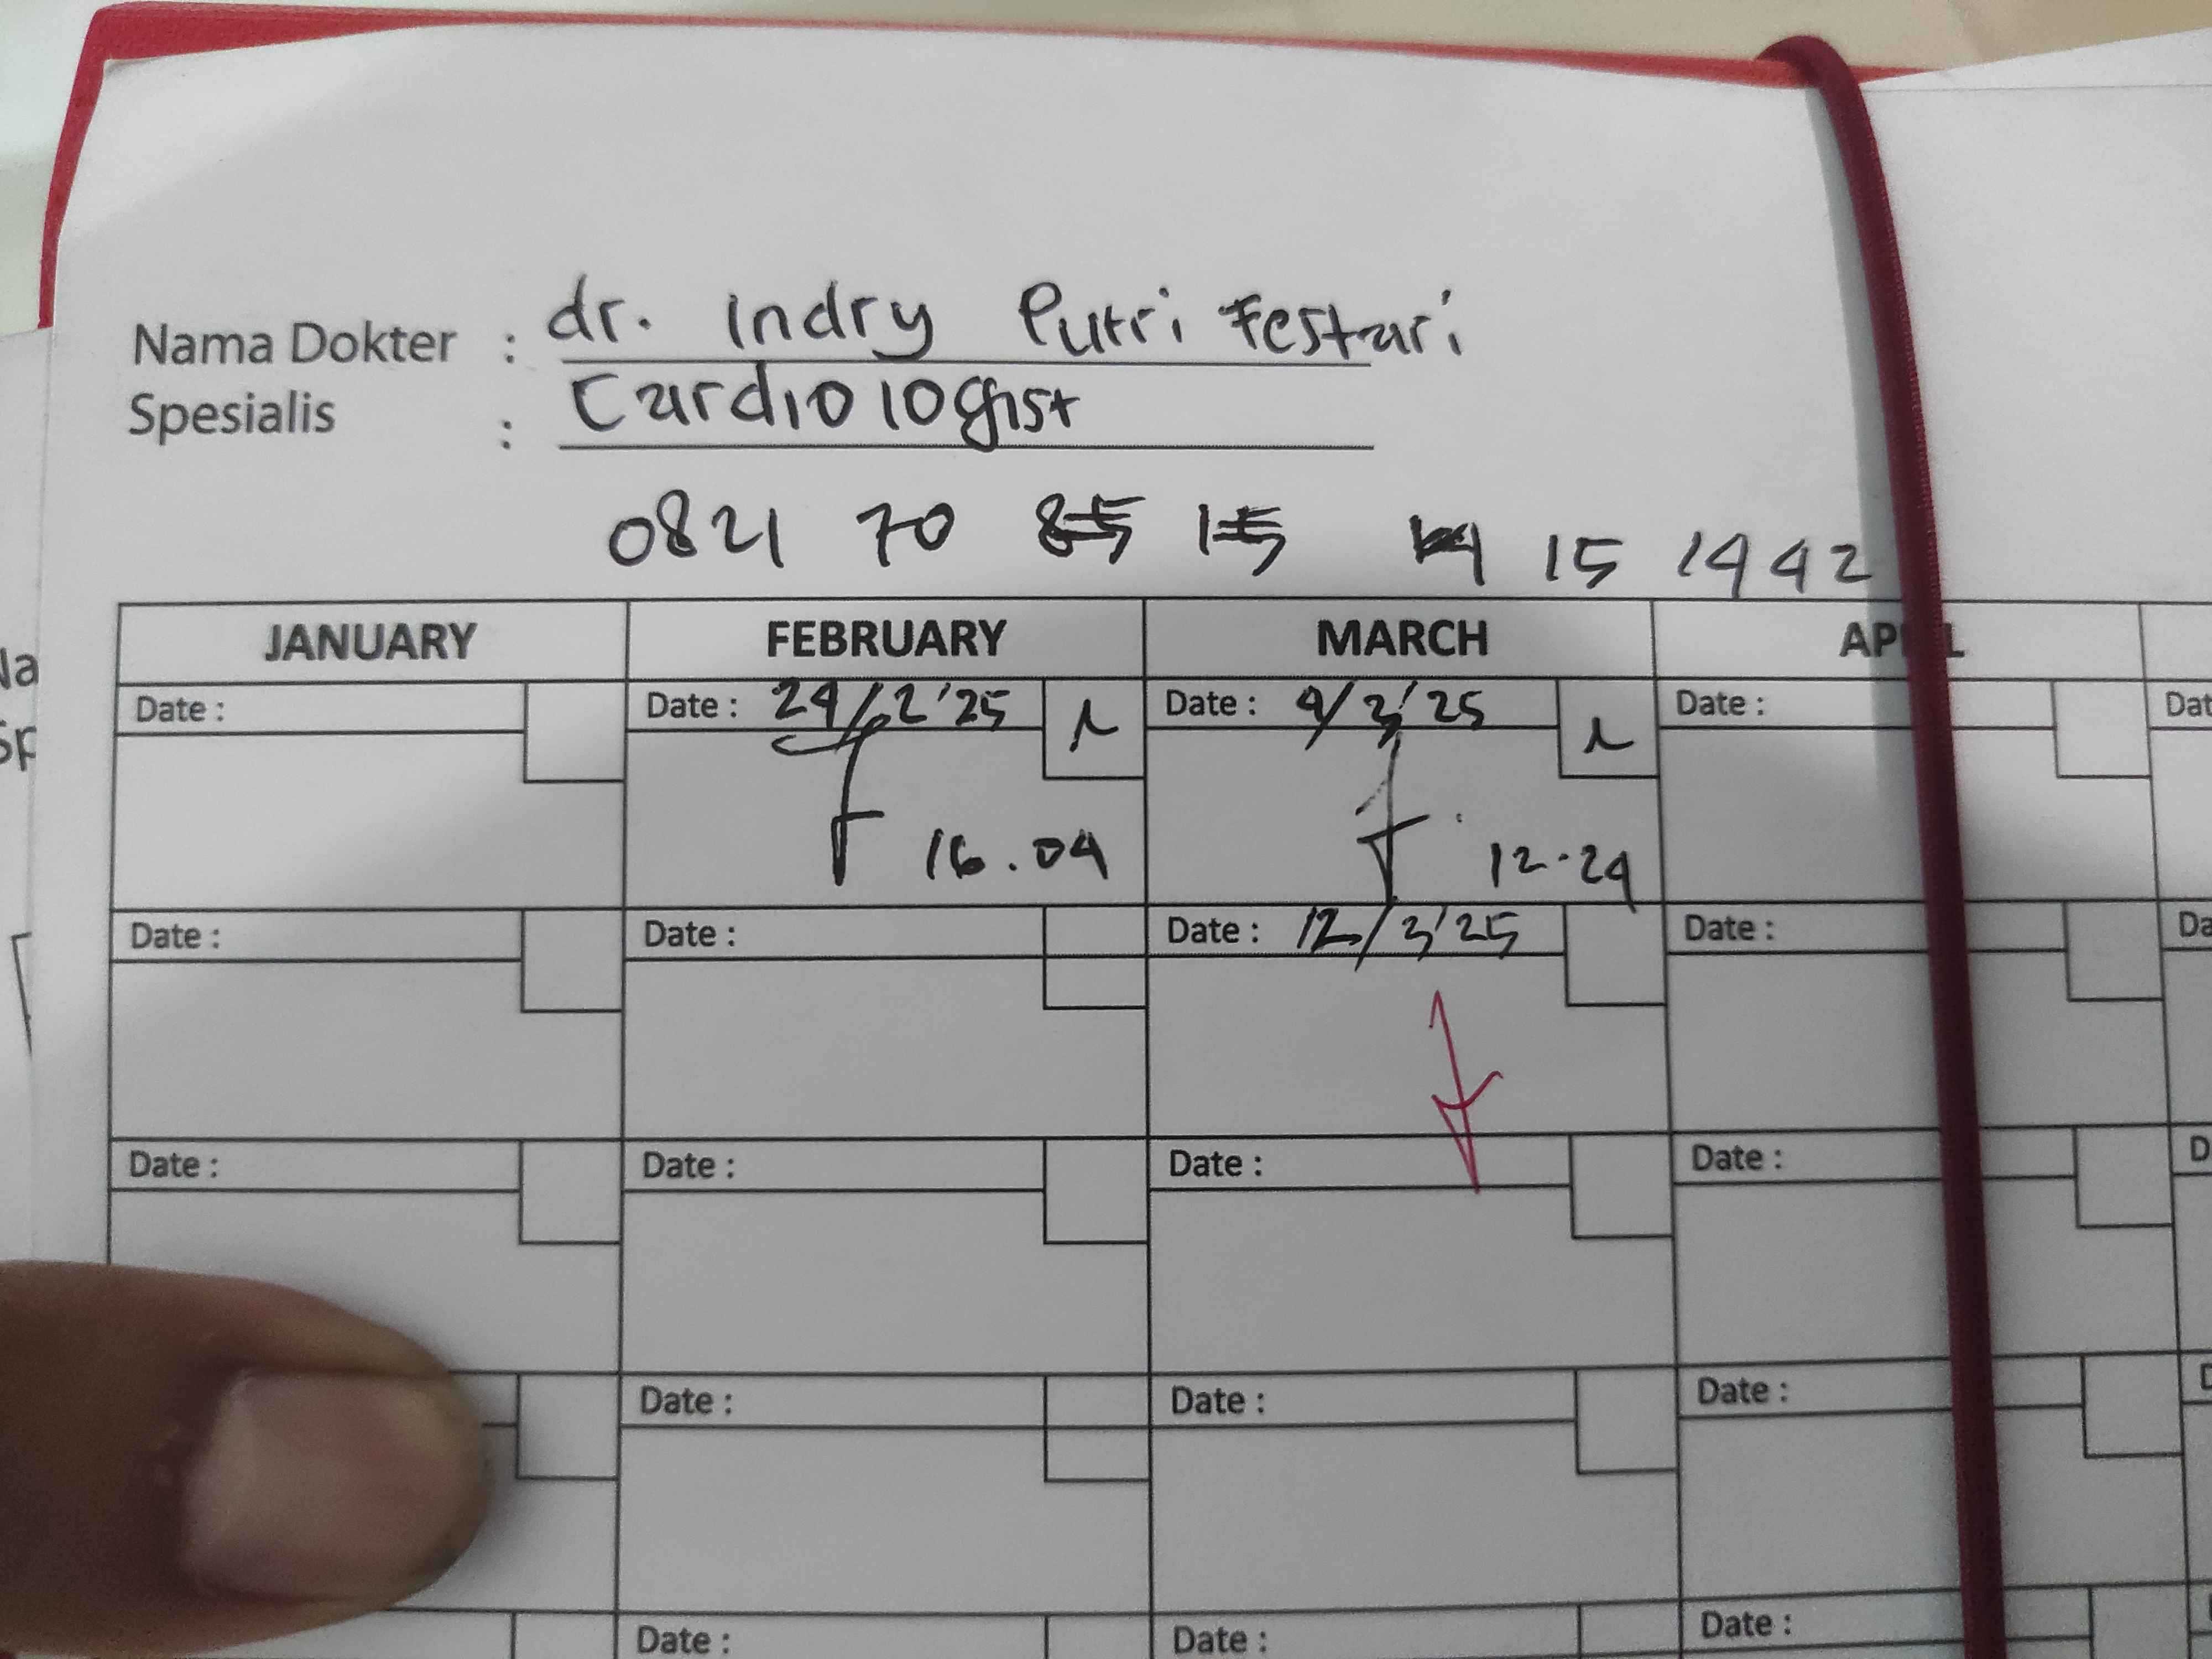 Nama Dokter : dr. Indry Putri Festari
Spesialis : Cardiologist
0821 70 85 15 14 15 1442
JANUARY FEBRUARY MARCH
Date : Date : 24/2'25 Date : 4/3'25 Date : Dat
16.04 12.24
Date : Date : Date : 12/3'25 Date : Da
Date : Date : Date : Date : D
Date : Date : Date :
Date : Date : Date :